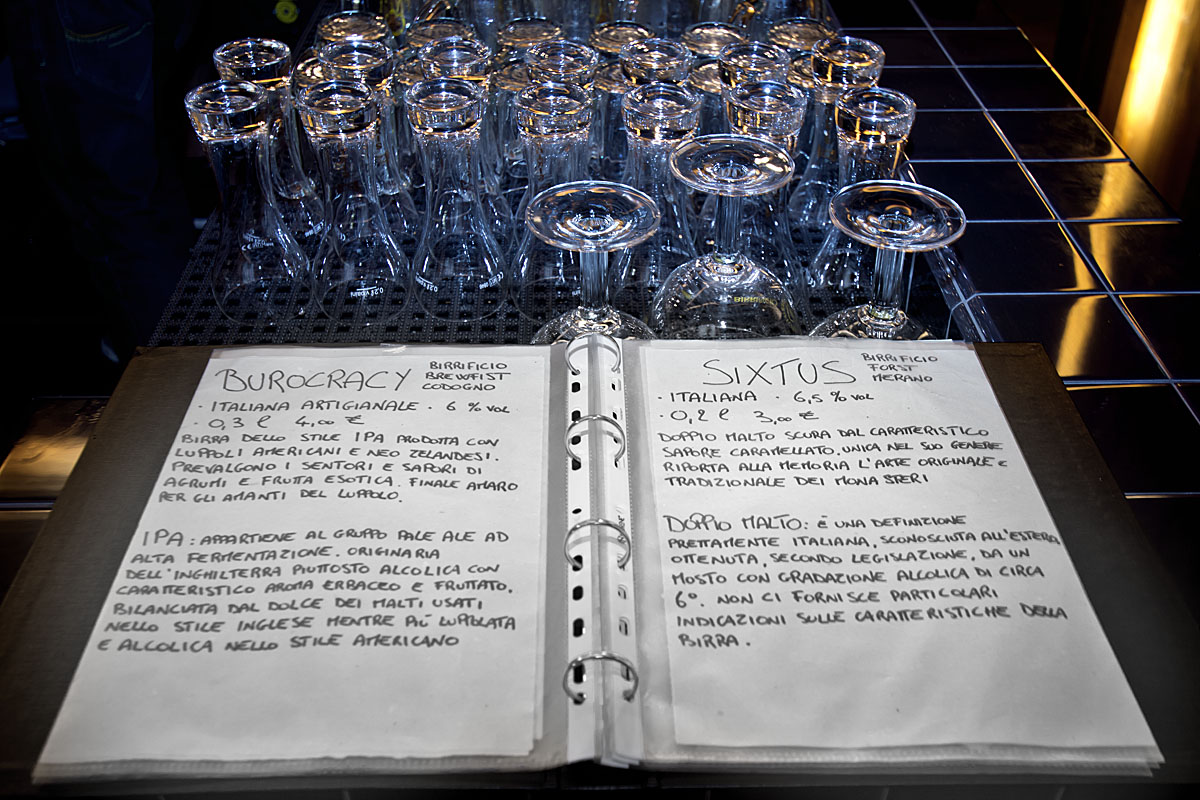 BUROCRACY
BIRRIFICIO
BREWFIST
CODOGNO
· ITALIANA ARTIGIANALE · 6 % VOL
· 0,3 ℓ 4,00 €
BIRRA DELLO STILE IPA PRODOTTA CON
LUPPOLI AMERICANI E NEO ZELANDESI.
PREVALGONO I SENTORI E SAPORI DI
AGRUMI E FRUTTA ESOTICA. FINALE AMARO
PER GLI AMANTI DEL LUPPOLO.
IPA: APPARTIENE AL GRUPPO PALE ALE AD
ALTA FERMENTAZIONE. ORIGINARIA
DELL'INGHILTERRA PIUTTOSTO ALCOLICA CON
CARATTERISTICO AROMA ERBACEO E FRUTTATO.
BILANCIATA DAL DOLCE DEI MALTI USATI
NELLO STILE INGLESE MENTRE PIÙ LUPPOLATA
E ALCOLICA NELLO STILE AMERICANO
SIXTUS
BIRRIFICIO
FORST
MERANO
· ITALIANA · 6,5 % VOL
· 0,2 ℓ 3,00 €
DOPPIO MALTO SCURA DAL CARATTERISTICO
SAPORE CARAMELLATO, UNICA NEL SUO GENERE
RIPORTA ALLA MEMORIA L'ARTE ORIGINALE E
TRADIZIONALE DEI MONASTERI
DOPPIO MALTO: È UNA DEFINIZIONE
PRETTAMENTE ITALIANA, SCONOSCIUTA ALL'ESTERO
OTTENUTA, SECONDO LEGISLAZIONE, DA UN
MOSTO CON GRADAZIONE ALCOLICA DI CIRCA
6°. NON CI FORNISCE PARTICOLARI
INDICAZIONI SULLE CARATTERISTICHE DELLA
BIRRA.